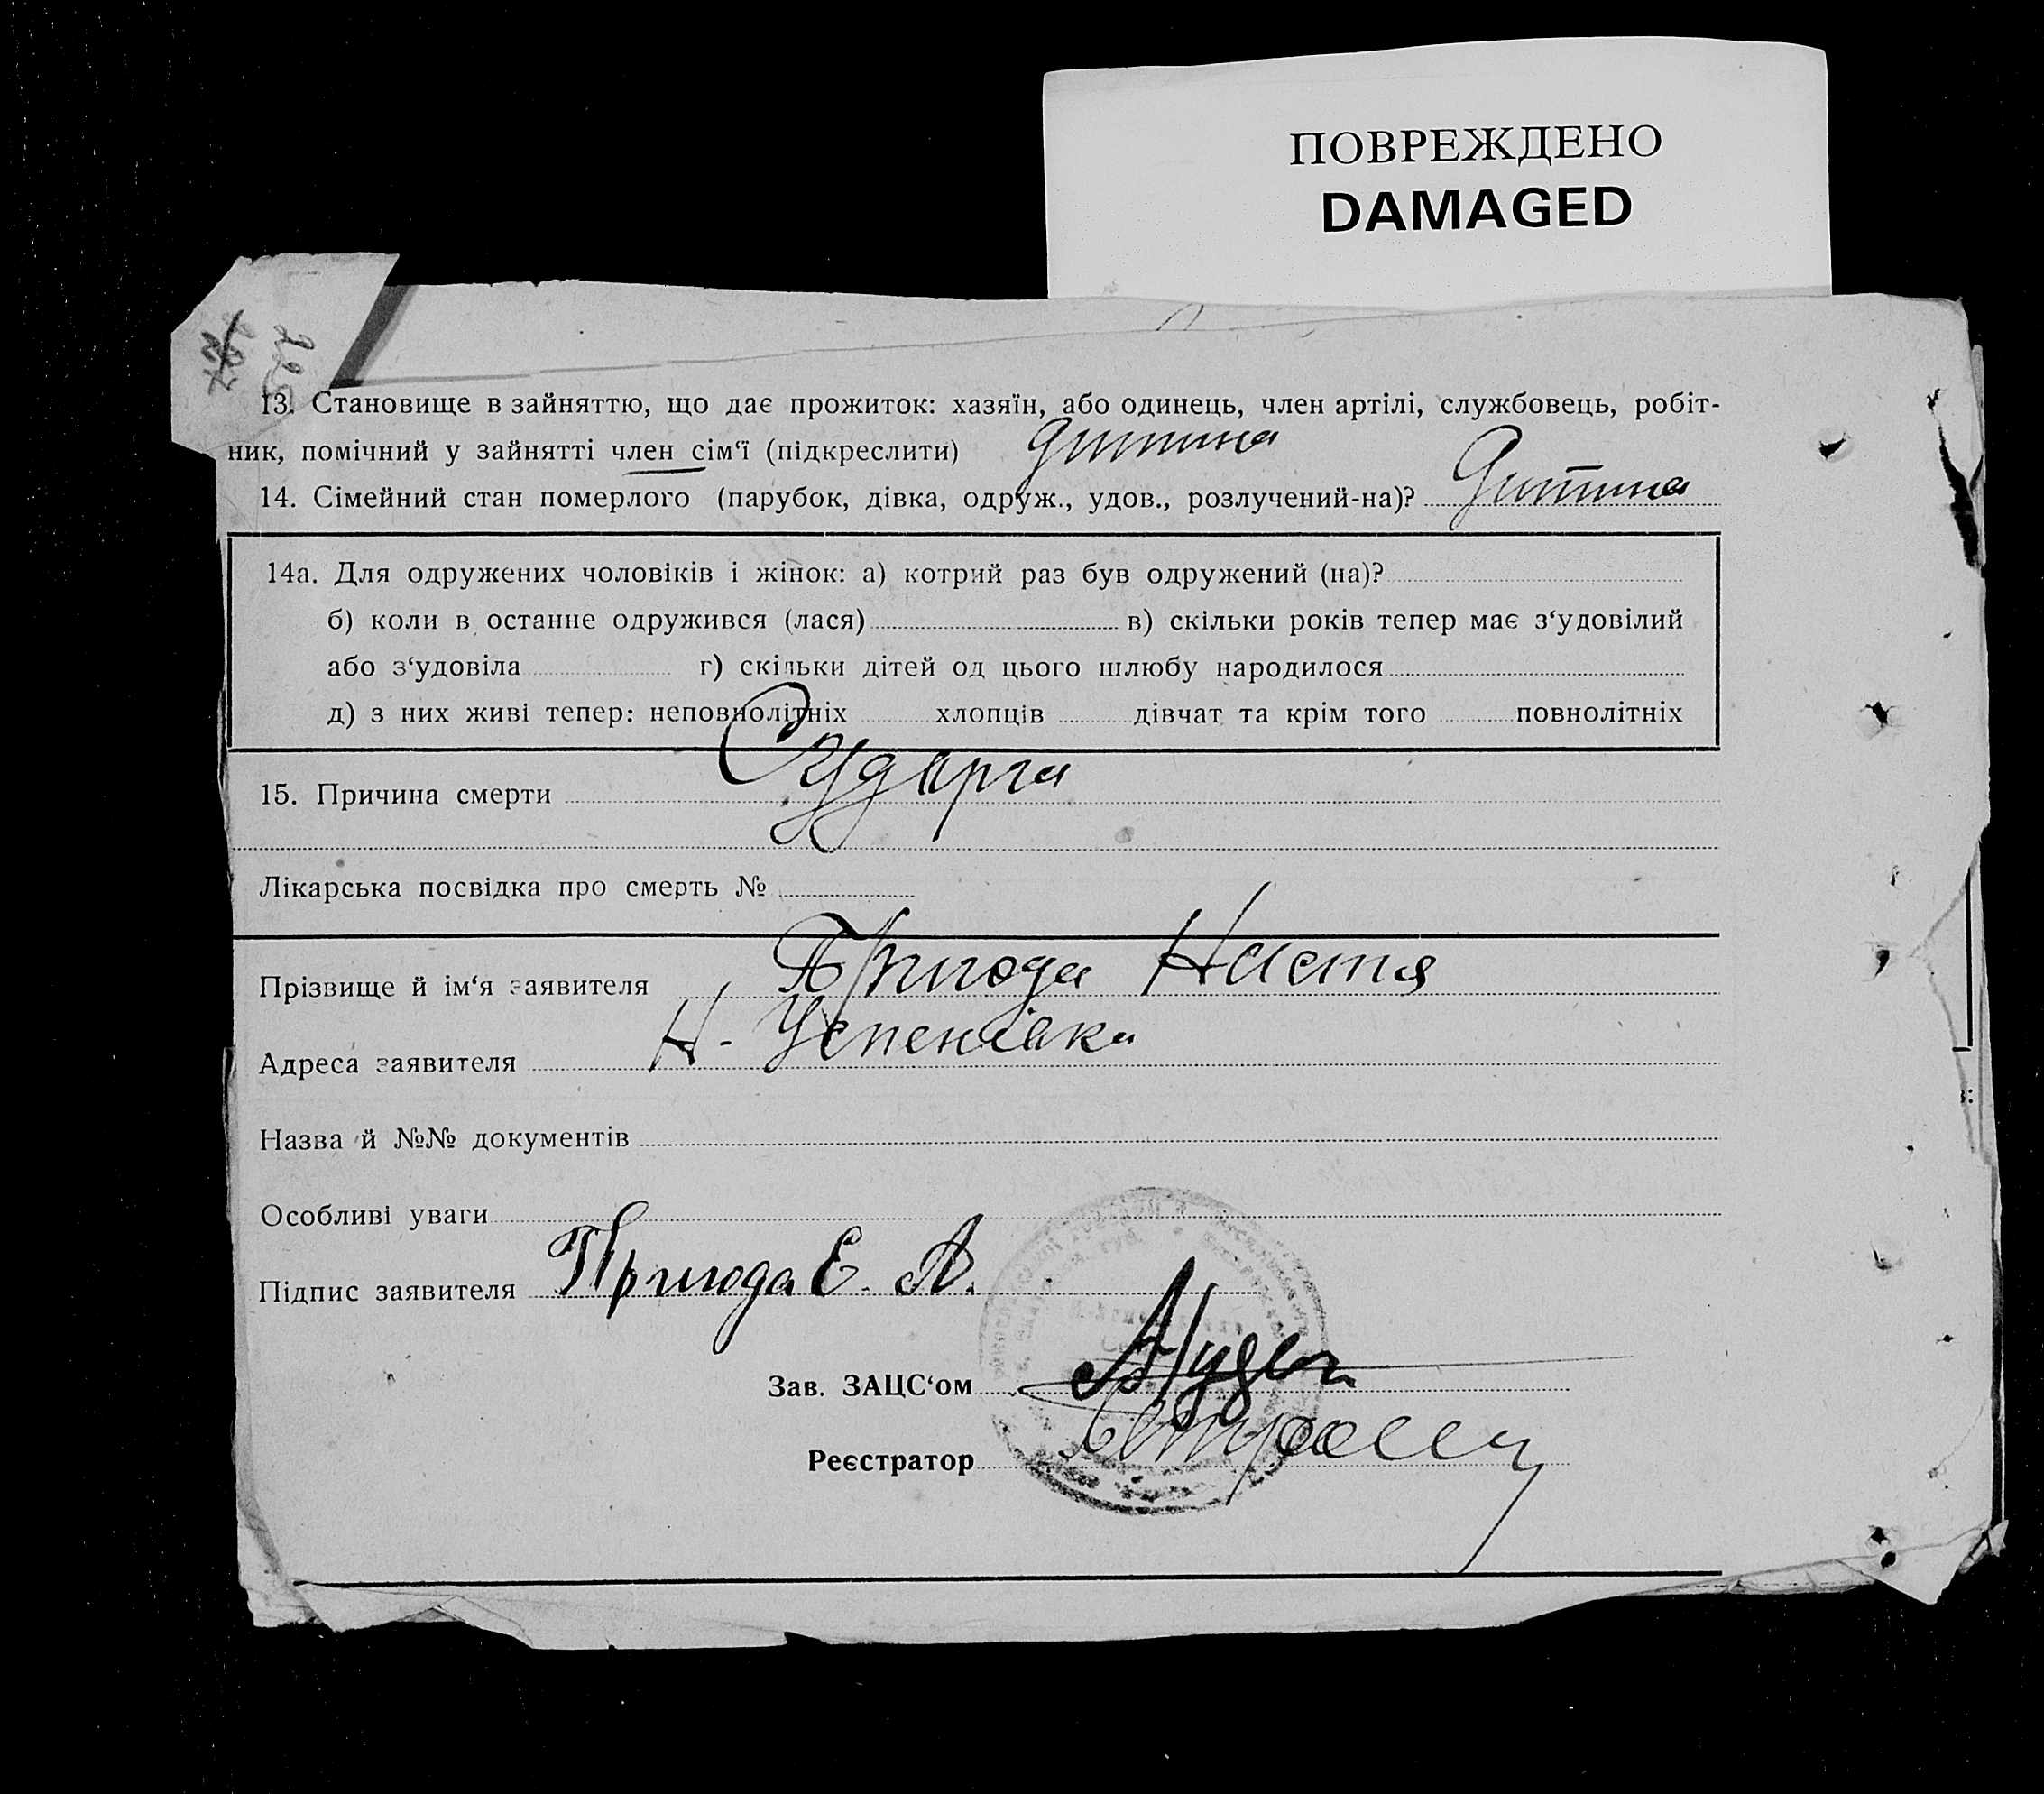 ПОВРЕЖДЕНО
DAMAGED
227
229
13. Становище в зайняттю, що дає прожиток: хазяїн, або одинець, член артілі, службовець, робіт-
ник, помічний у зайнятті член сім‘ї (підкреслити) дитина
14. Сімейний стан померлого (парубок, дівка, одруж., удов., розлучений-на)? Дитина
14а. Для одружених чоловіків і жінок: а) котрий раз був одружений (на)?
б) коли в останне одружився (лася) в) скільки років тепер має з‘удовілий
або з‘удовіла г) скільки дітей од цього шлюбу народилося
д) з них живі тепер: неповнолітніх хлопців дівчат та крім того повнолітніх
15. Причина смерти Судорга
Лікарська посвідка про смерть №
Прізвище й ім‘я заявителя Пригода Настя
Адреса заявителя Н. Успенівка
Назва й №№ документів
Особливі уваги
Підпис заявителя Пригода Е. А.
Зав. ЗАЦС‘ом
Реєстратор